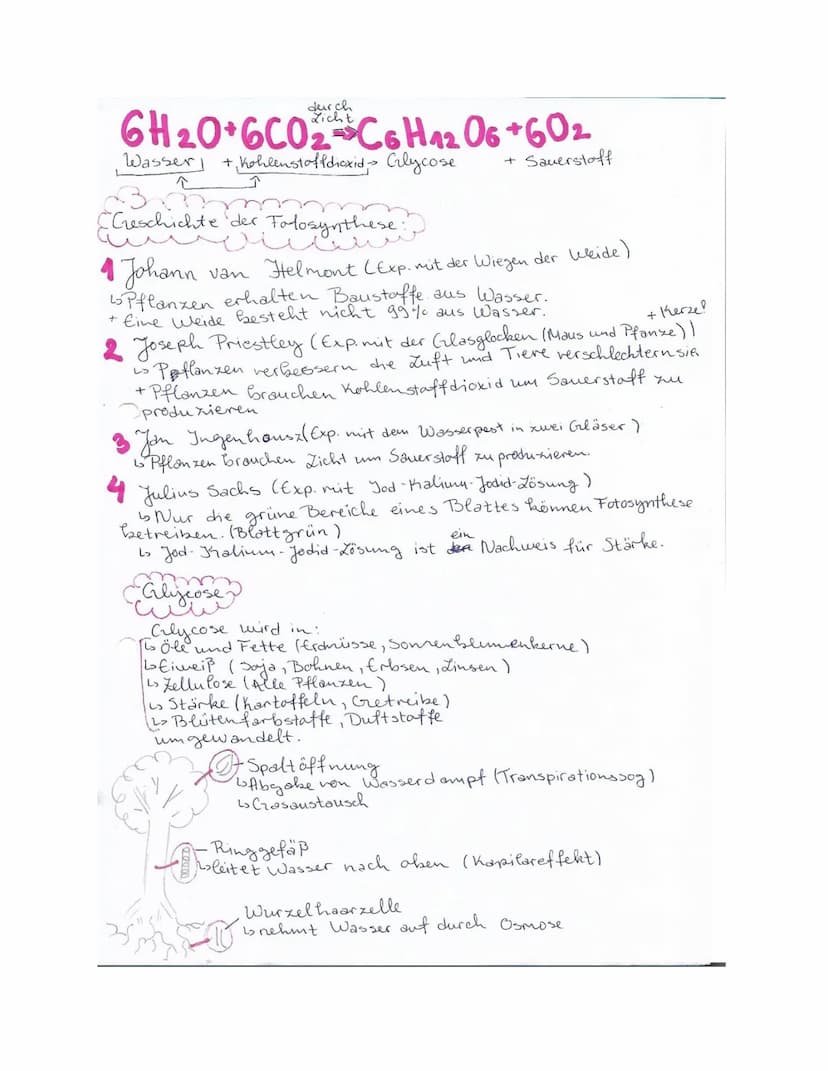 durch
Licht
6H2O+6CO2⇒C6H12O6+6O2
Wasser + Kohlenstoffdioxid → Glycose + Sauerstoff
Geschichte der Fotosynthese:
1 Johann van Helmont (Exp. mit der Wiegen der Weide)
↳ Pflanzen erhalten Baustoffe aus Wasser.
+ Eine Weide besteht nicht 99% aus Wasser.
+ Kerze!
2 Joseph Priestley (Exp. mit der Glasglocken (Maus und Pfanze))
↳ Pflanzen verbessern die Luft und Tiere verschlechtern sie
+ Pflanzen brauchen Kohlenstaffdioxid um Sauerstoff zu
produzieren
3 Jan Ingenhousz (Exp. mit dem Wasserpest in zwei Gläser)
↳ Pflanzen brauchen Licht um Sauerstoff zu produzieren.
4 Julius Sachs (Exp. mit Jod-Kalium-Jodid-Lösung)
↳ Nur die grüne Bereiche eines Blattes können Fotosynthese
betreiben. (Blattgrün)
↳ Jod-Kalium-Jodid-Lösung ist ein Nachweis für Stärke.
Glycose
Glycose wird in:
↳ Öle und Fette (Erdnüsse, Sonnenblumenkerne)
↳ Eiweiß (Soja, Bohnen, Erbsen, Linsen)
↳ Zellulose (Alle Pflanzen)
↳ Stärke (Kartoffeln, Getreibe)
↳ Blütenfarbstaffe, Duftstaffe
umgewandelt.
Spaltöffnung
↳ Abgabe von Wasserdampf (Transpirationssog)
↳ Gasaustausch
– Ringgefäß
↳ leitet Wasser nach oben (Kapilareffekt)
Wurzelhaarzelle
↳ nehmt Wasser auf durch Osmose